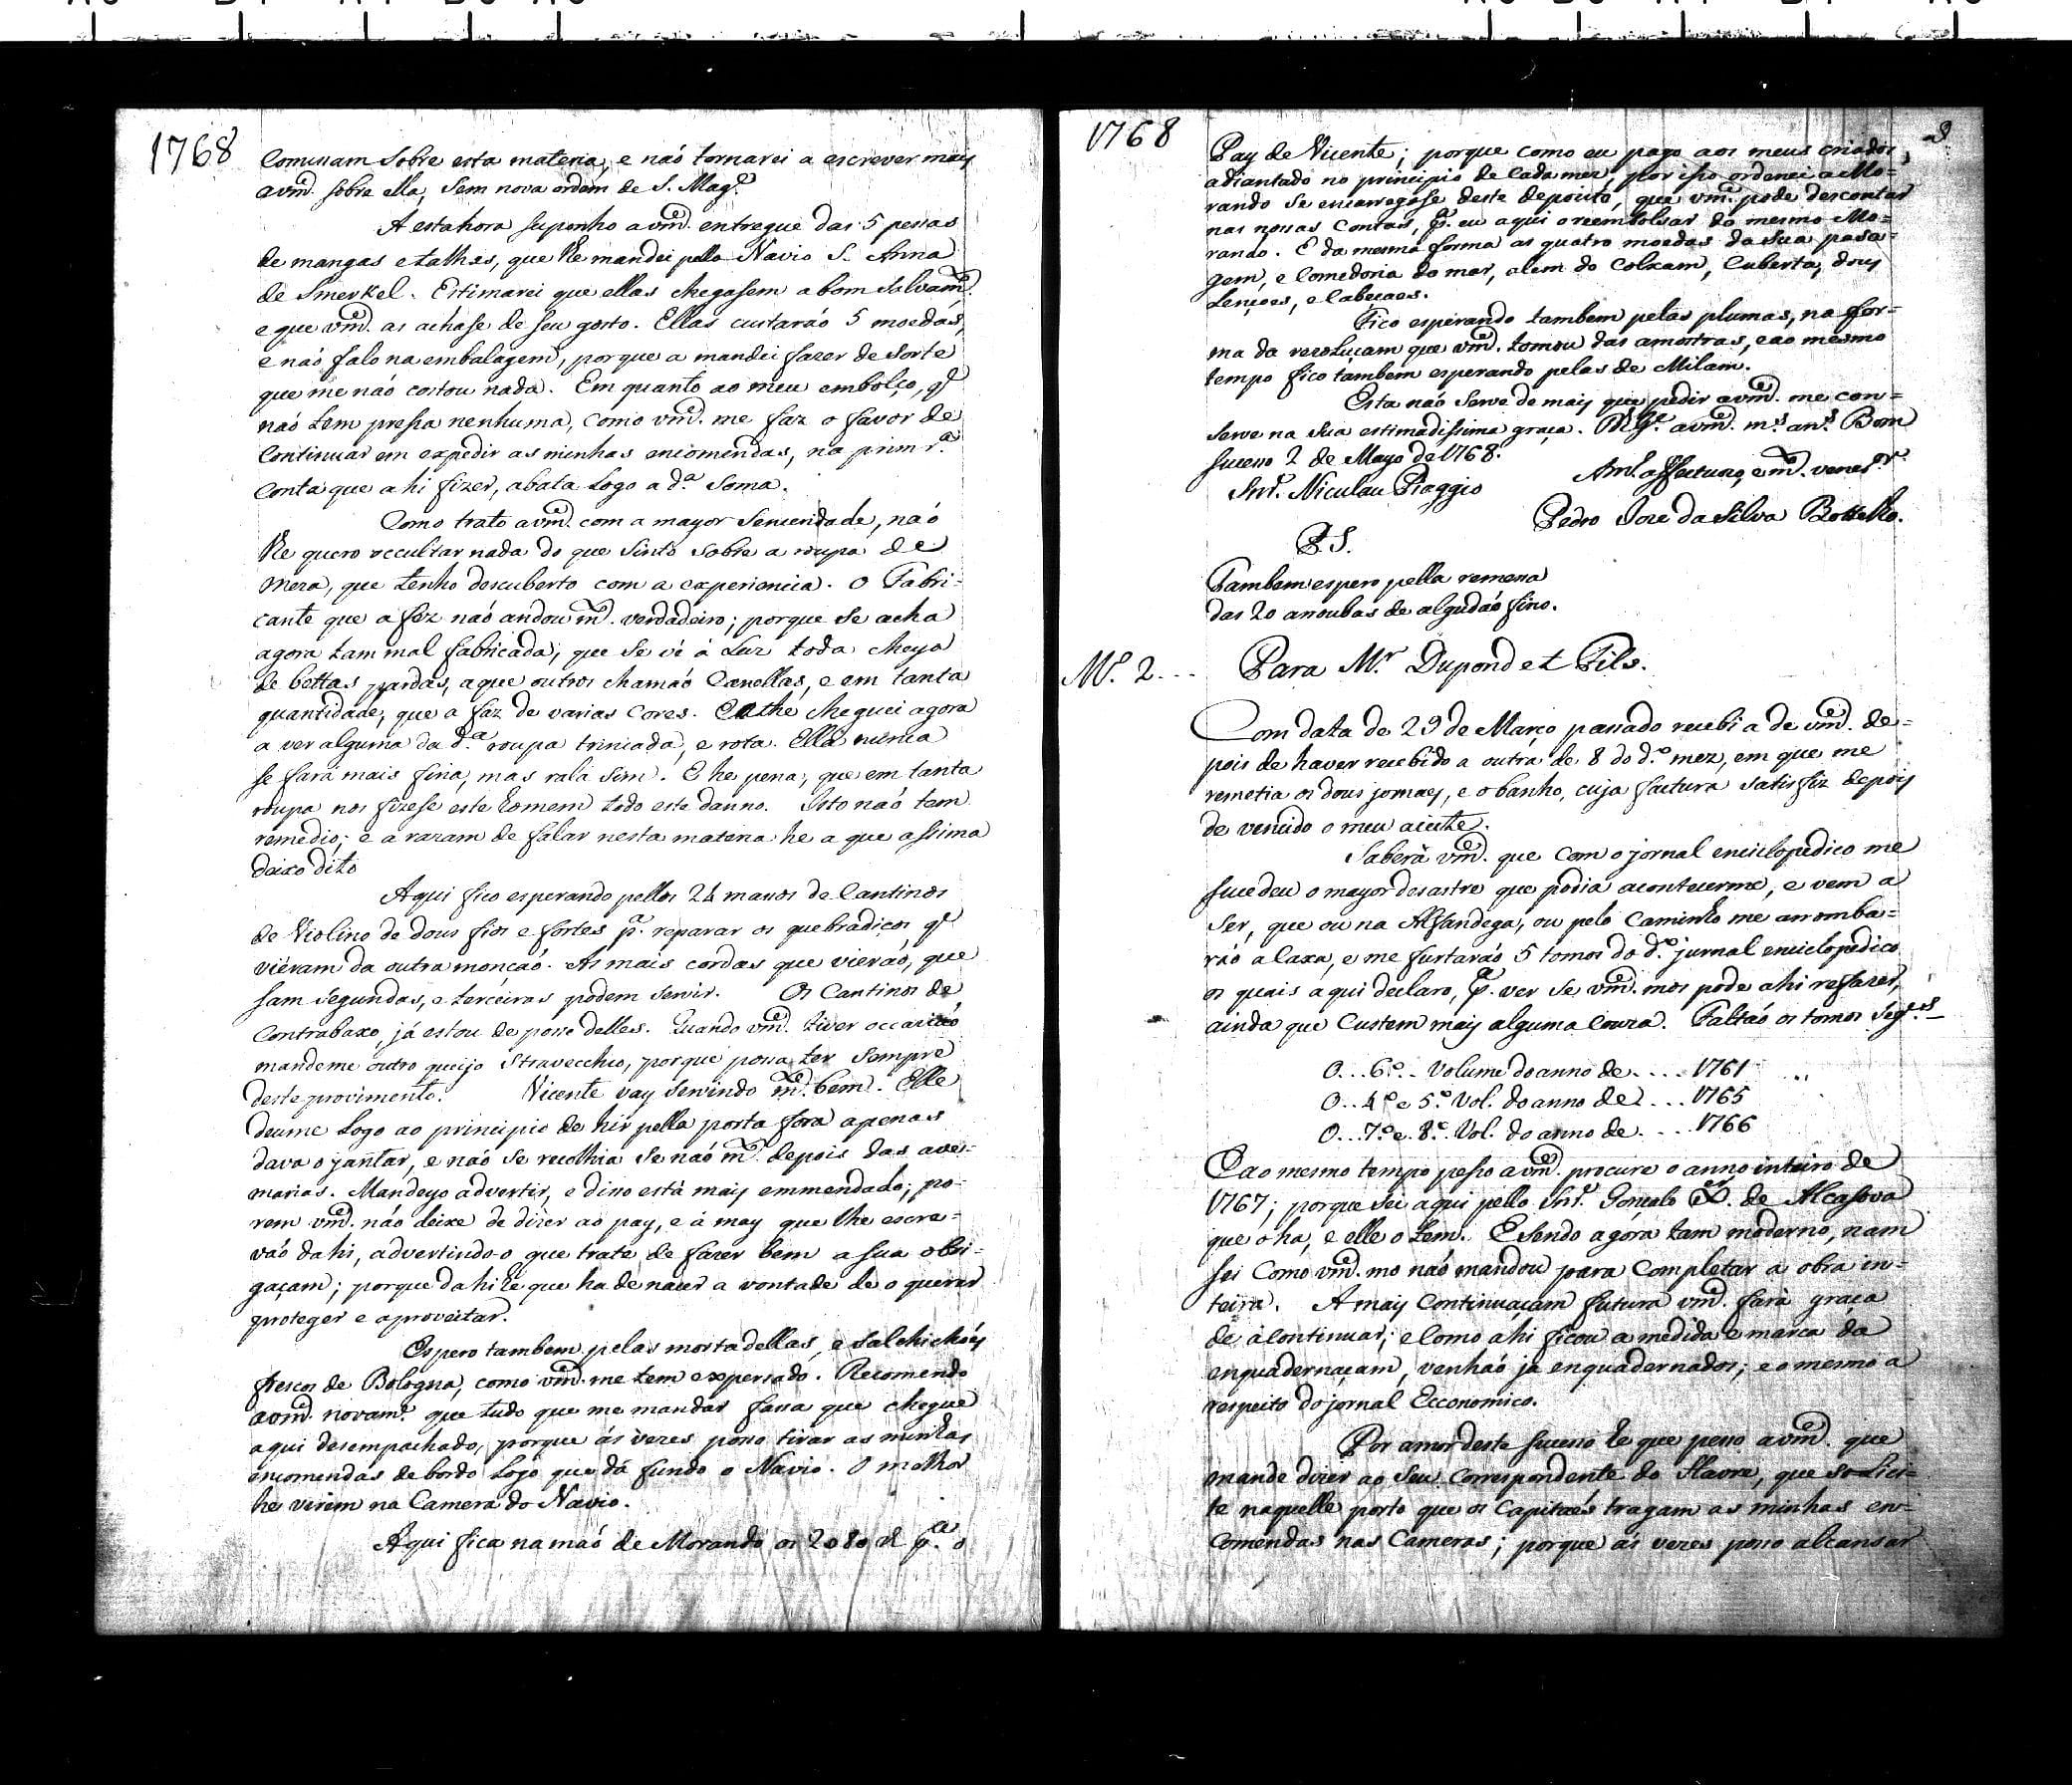 1768
Comissam sobre esta materia, e naó tornarei a escrever mais
a vm.ce sobre ella, sem nova ordem de S. Mag.e
A esta hora suponho a vm.ce entregue das 5 pessas
de mangas e talhas, que lhe mandei pello Navio S. Anna
de Smerkel. Estimarei que ellas chegasem a bom salvam.to
e que vm.ce as achase de seu gosto. Ellas custaráo 5 moedas,
e naó falo na embalagem, porque a mandei fazer de sorte
que me náo costou nada. Em quanto ao meu embolço, q.e
naó tem pressa nenhuma, como vm.ce me faz o favor de
continuar em expedir as minhas encomendas, na prim.ra
conta que ahi fizer, abata logo a d.a soma.
Como trato a vm.ce com a mayor senceridade, naó
lhe quero occultar nada do que sinto sobre a roupa de
meza, que tenho descuberto com a experiencia. O Fabri-
cante que a fez naó andou m.to verdadeiro; porque se acha
agora tam mal fabricada, que se vé á luz toda cheya
de bettas pardas, a que outros chamaó Canellas, e em tanta
quantidade, que a faz de varias cores. E athé cheguei agora
a ver alguma da d.a roupa trincada, e rota. Ella nunca
se fará mais fina, mas rala sim. E he pena, que em tanta
roupa nos fizese este homem todo este danno. Isto naó tem
remedio; e a razam de falar nesta materia he a que assima
deixo dito
Aqui fico esperando pellos 24 massos de Cantinos
de Violino de dous fios e fortes p.a reparar os quebradiços q.e
viéram da outra monçaó. As mais cordas que vieraó, que
sam segundas, e terceiras podem servir. Os Cantinos de
Contrabaxo, já estou de posse delles. Quando vm.ce tiver occaziáo
mandeme outro queijo Stravecchio, porque possa ter sempre
deste provimento. Vicente vay servindo m.to bem. Elle
deume logo ao principio de hir pella porta fora apenas
dava o jantar, e naó se recolhia se naó m.to depois das ave-
marias. Mandeyo advertir, e disso está mais emmendado; po-
rem vm.ce náo deixe de dizer ao pay, e á may que lhe escre-
váo dahi, advertindo-o que trate de fazer bem a sua obri-
gaçam; porque dahi hé que ha de nacer a vontade de o querer
proteger e aproveitar.
Espero tambem pelas mortadellas, e salchichóis
frescos de Bologna, como vm.ce me tem expersado. Recomendo
a vm.ce novam.te que tudo que me mandar fassa que chegue
aqui desempachado, porque ás vezes posso tirar as minhas
encomendas de bordo logo que dá fundo o Navio. O melhor
he virem na Camera do Navio.
Aqui fica na maó de Morando os 2080 r p.a o
1768
3
Pay de Vicente; porque como eu pago aos meus criados,
adiantado no principio de cada mez, por isso ordenei a Mo=
rando se encarregase deste deposito, que vm.ce pode descontar
nas nossas contas, p.a eu aqui o reembolsar do mesmo Mo=
rando. E da mesma forma as quatro moedas da sua pasa=
gem, e Comedoria do mar, alem do Colxam, Cuberta, dous
Lençoes, e Cabecaes.
Fico esperando tambem pelas plumas, na for=
ma da rezoluçam que vm.ce tomou das amostras, e ao mesmo
tempo fico tambem esperando pelas de Milam.
Esta naó serve de mais que pedir a vm.ce me con=
serve na sua estimadissima graça. D.s g.e a vm.ce m.s an.s Bom
sucesso 2 de Mayo de 1768.
Am.o affectuozo, e m.to vener.or
Snr. Niculau Piaggio
Pedro Joze da Silva Botelho.
P.S.
Tambem espero pella remessa
das 20 arroubas de algudáo fino.
N.o 2...
Para M.r Dupond et Fils.
Com data de 29 de Março passado recebi a de vm.ce de=
pois de haver recebido a outra de 8 do d.o mez, em que me
remetia os dous jornaes, e o banho, cuja factura satisfiz depois
de vencido o meu aceite.
Saberá vm.ce que com o jornal enciclopedico me
sucedeu o mayor desastre que podia acontecerme, e vem a
ser, que ou na Alfandega, ou pelo caminho me arromba=
ráo a Caxa, e me furtaráo 5 tomos do d.o jurnal enciclopedico
os quais aqui declaro, p.a ver se vm.ce mos pode ahi refazer,
ainda que custem mais alguma couza. Faltáo os tomos seg.tes
O...6.o.. Volume do anno de.... 1761
O..4.o e 5.o Vol. do anno de.... 1765
O...7.o e 8.o Vol. do anno de.... 1766
E ao mesmo tempo pesso a vm.ce procure o anno inteiro de
1767; porque sei aqui pello Snr. Gonçalo X.er de Alcasova
que o ha, e elle o tem. E sendo agora tam moderno, nam
sei como vm.ce mo naó mandou para completar a obra in=
teira. A mais continuaçam futura vm.ce fará graça
de a continuar; e como ahi ficou a medida e marca da
enquadernaçam, venhaó já enquadernados; e o mesmo a
respeito do jornal Ecconomico.
Por amor deste sucesso he que pesso a vm.ce que
mande dizer ao seu correspondente do Havre, que solici=
te naquelle porto que os Capitaés tragam as minhas en=
comendas nas Cameras; porque ás vezes posso alcansar